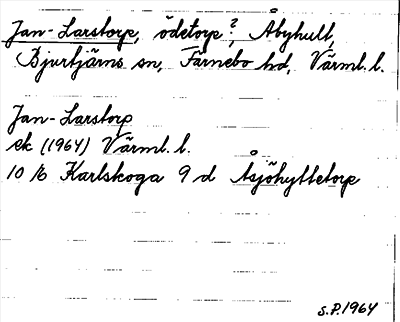 Jan-Larstorp, ödetorp?, Åbyhult,
Bjurtjärns sn, Färnebo hd, Värml. l.
Jan-Larstorp
ek (1964) Värml. l.
10 16 Karlskoga 9 d Åsjöhyttetorp
S.P. 1964